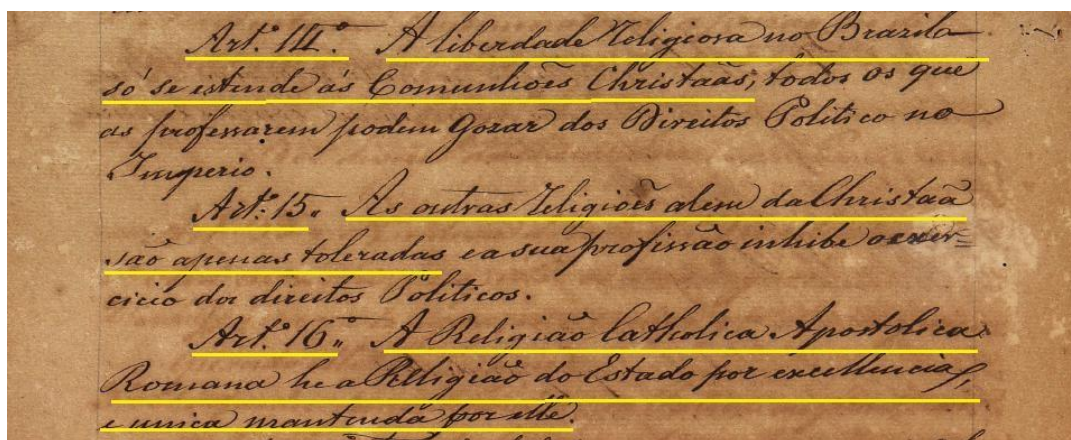 Art.º 14.º A liberdade Religiosa no Brazil
só se estende ás Comunhões Christaãs; todos os que
as professarem podem gozar dos Direitos Politico no
Imperio.
Art.º 15„ As outras Religiões alem da Christaã
são apenas toleradas e a sua profissão inhibe o exer=
cicio dos direitos Politicos.
Art.º 16„ A Religião Catholica Apostolica
Romana he a Religião do Estado por excellencia,
e unica mantenda por elle.